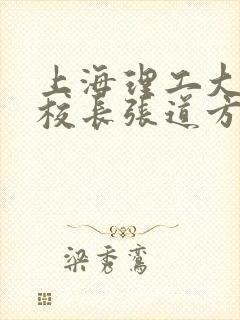 上海理工大
校长张道方
梁秀鸾